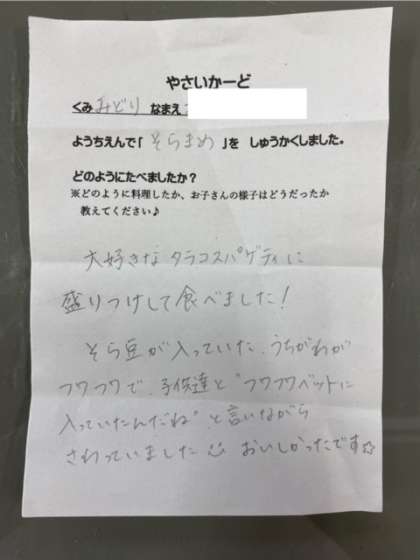 やさいかーど
くみ みどり なまえ
ようちえんで「そらまめ」を しゅうかくしました。
どのようにたべましたか?
※どのように料理したか、お子さんの様子はどうだったか
教えてください♪
大好きなタラコスパゲティに
盛りつけして食べました!
そら豆が入っていた、うちがわが
フワフワで、子供達と"フワフワベットに
入っていたんだね"と言いながら
さわっていました おいしかったです☆